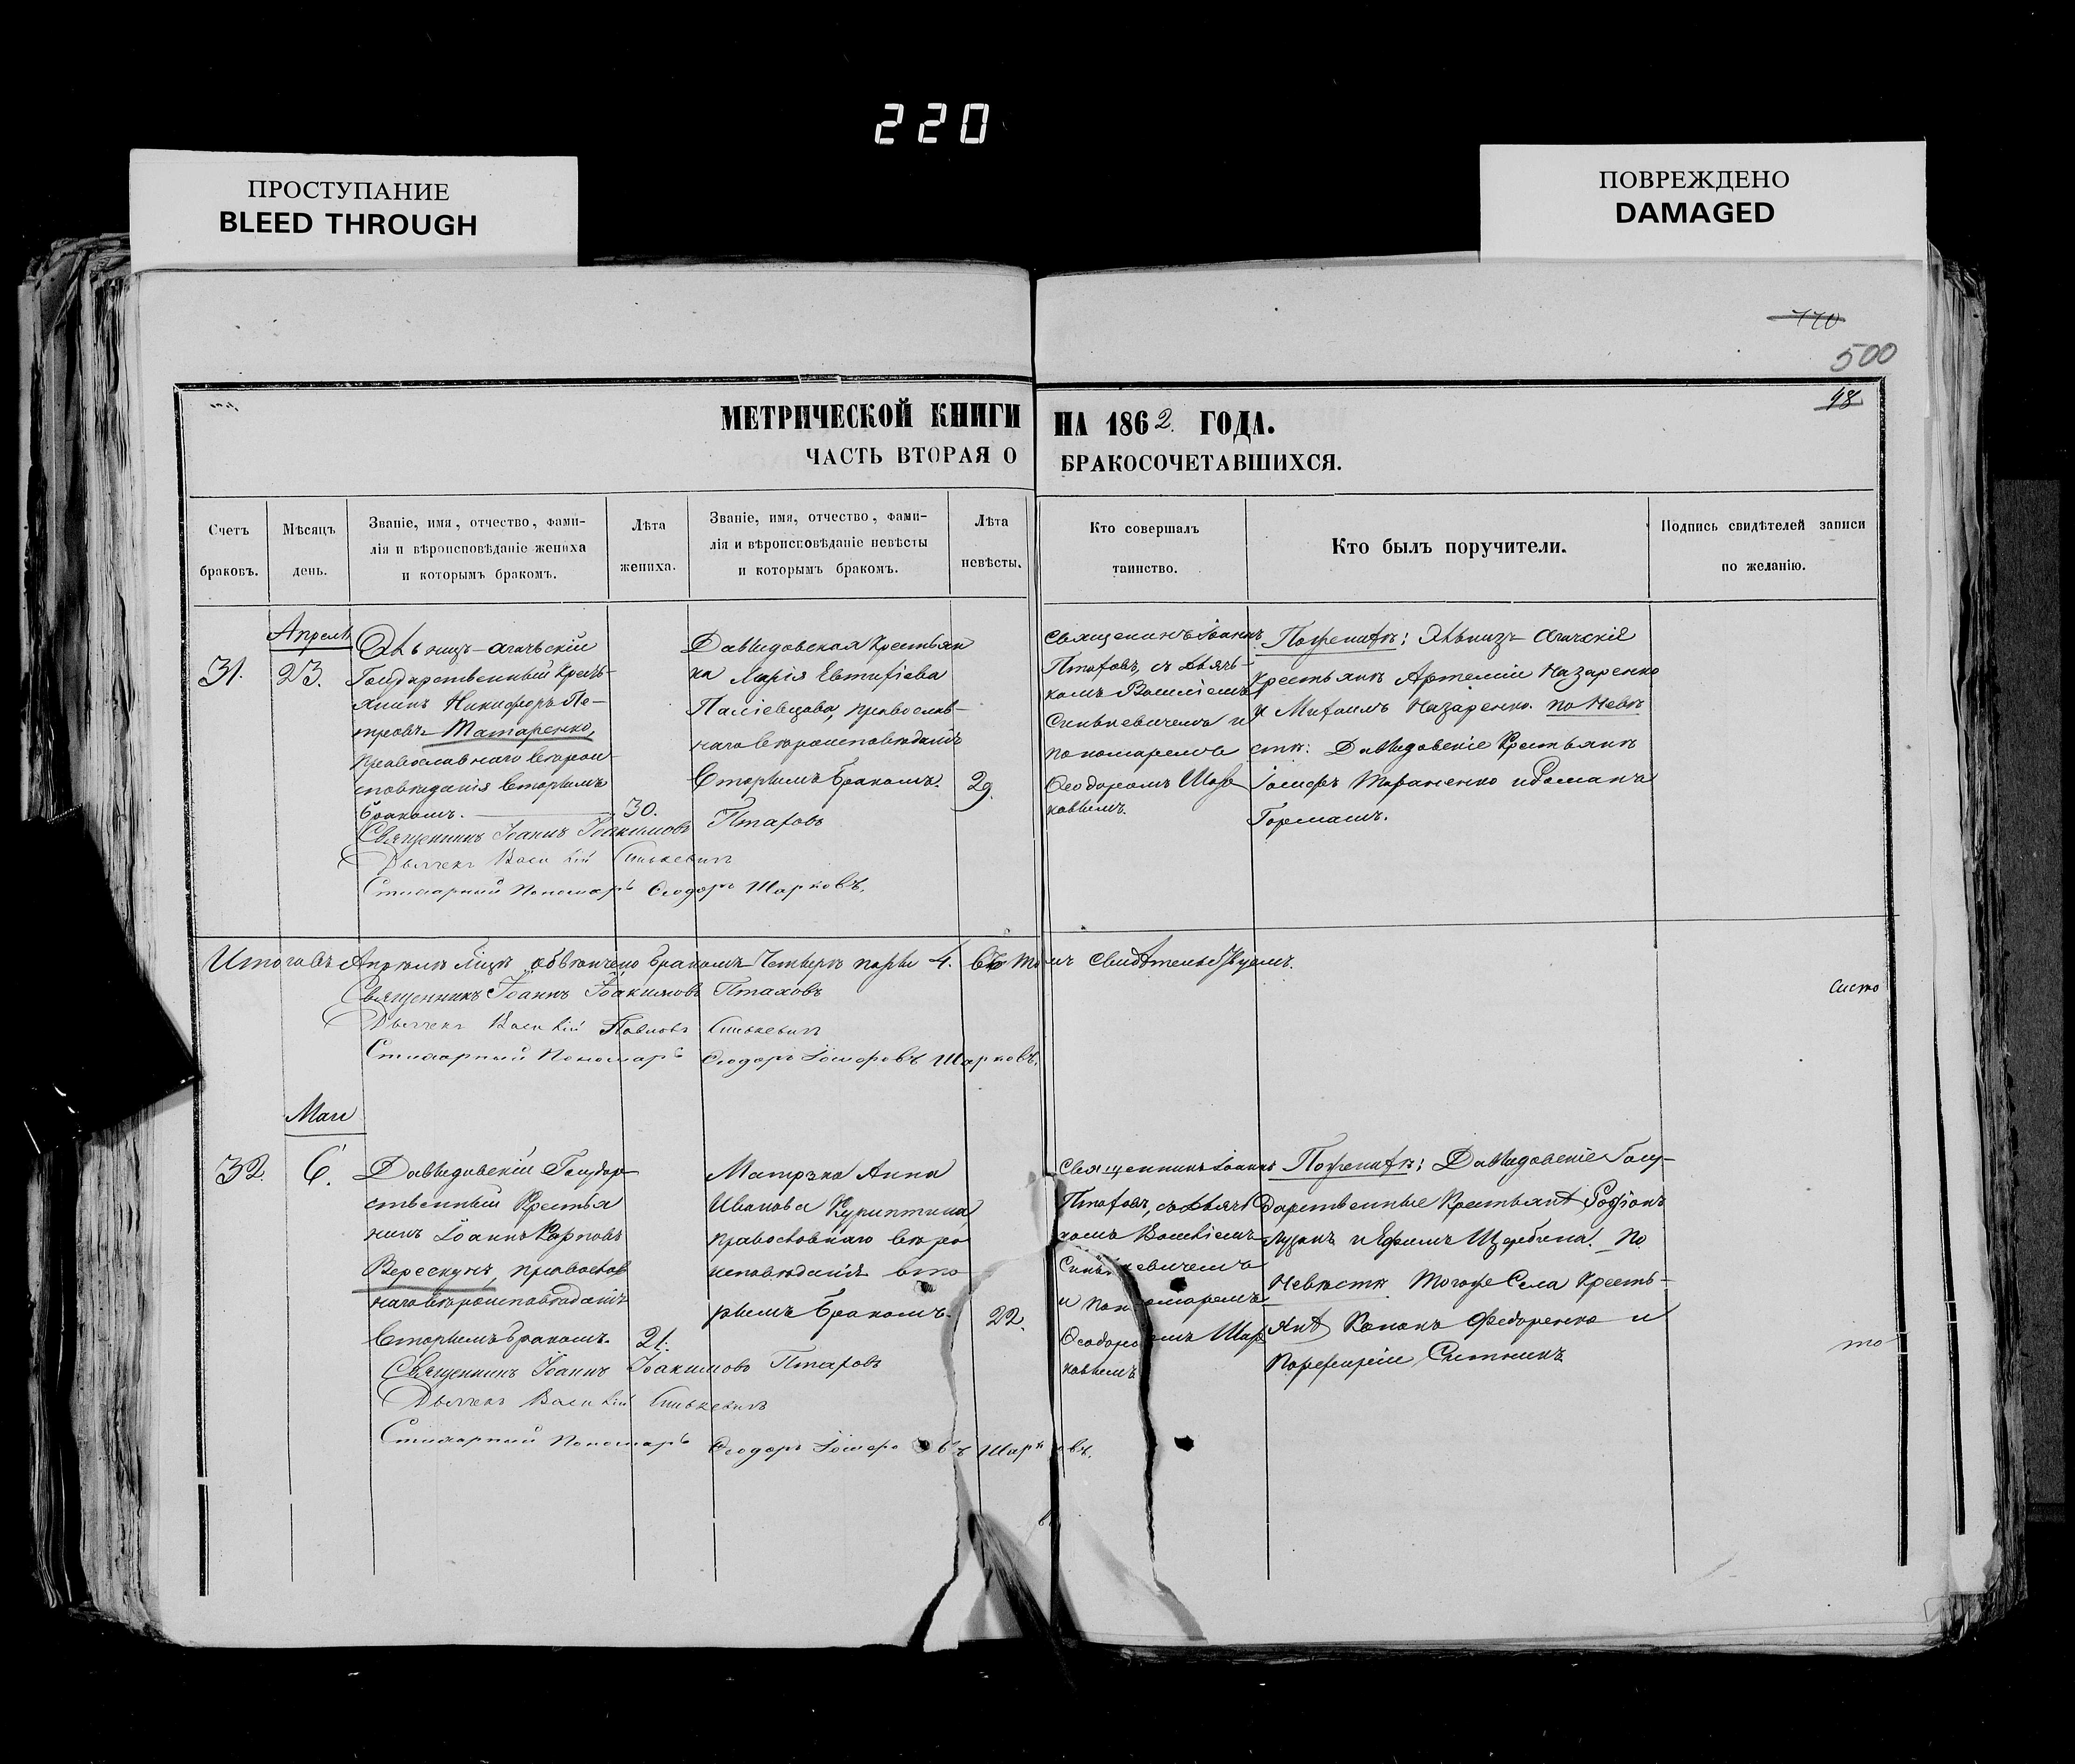 220
ПРОСТУПАНИЕ
BLEED THROUGH
ПОВРЕЖДЕНО
DAMAGED
110
500
48
МЕТРИЧЕСКОЙ КНИГИ НА 1862 ГОДА.
ЧАСТЬ ВТОРАЯ О БРАКОСОЧЕТАВШИХСЯ.
Счетъ
браковъ.
Мѣсяцъ
день.
Званіе, имя, отчество, фами-
лія и вѣроисповѣданіе жениха
и которымъ бракомъ.
Лѣта
жениха.
Званіе, имя, отчество, фами-
лія и вѣроисповѣданіе невѣсты
и которымъ бракомъ.
Лѣта
невѣсты.
Кто совершалъ
таинство.
Кто былъ поручители.
Подпись свидѣтелей записи
по желанію.
31.
Апрель
23.
Государственный Кресть-
янинъ Никифоръ Пе-
тровъ Татаренко,
православнаго вѣрои-
сповѣданія вторымъ
бракомъ.
30.
Давидовская Крестьян
ка Марія Евтифіева
Паліевцова, православ-
наго вѣроисповѣданія
вторымъ бракомъ.
29.
Священникъ Іоаннъ
Птаховъ, съ дьяч-
комъ Василіемъ
Синькевичемъ и
пономаремъ
Ѳеодоромъ Шар
ковымъ.
По женихѣ:
Крестьяне Артемій Назаренко
и Михаилъ Назаренко. по Невѣ
стѣ: Давидовскіе Крестьяне
Іосифъ Тараненко и Романъ
Горманъ.
Священникъ Іоаннъ Іоакимовъ Птаховъ
Дьячекъ Василій Синькевичъ
Стихарный Пономарь Ѳеодоръ Шарковъ.
Итого въ Апрѣлѣ м̃цѣ обвѣнчено бракомъ Четыре пары 4. Въ томъ свидѣтельствуемъ.
Священникъ Іоаннъ Іоакимовъ Птаховъ
Дьячекъ Василій Павловъ Синькевичъ
Стихарный Пономарь Ѳеодоръ Іосифовъ Шарковъ.
систо
Маи
32.
6.
Давидовскій Государ
ственный Крестья
нинъ Іоаннъ Карповъ
Верескунъ, православ
наго вѣроисповѣданія
вторымъ бракомъ.
21.
Матрзка Анна
Иванова
православнаго вѣро
исповѣданія вто
рымъ бракомъ.
22.
Священникъ Іоаннъ
Птаховъ, съ дьяч
комъ Василіемъ
Синькевичемъ
и пономаремъ
Ѳеодоромъ Шар
ковымъ
По женихѣ: Давидовскіе Госу-
дарственные Крестьяне Софронъ
Лузанъ и Ефимъ Щербина. По
Невѣстѣ Тогоже Села Кресть-
яне Кононъ Федоренко и
Порфирій Ситникъ
Священникъ Іоаннъ Іоакимовъ Птаховъ
Дьячекъ Василій Синькевичъ
Стихарный Пономарь Ѳеодоръ Іосифовъ Шарковъ.
то